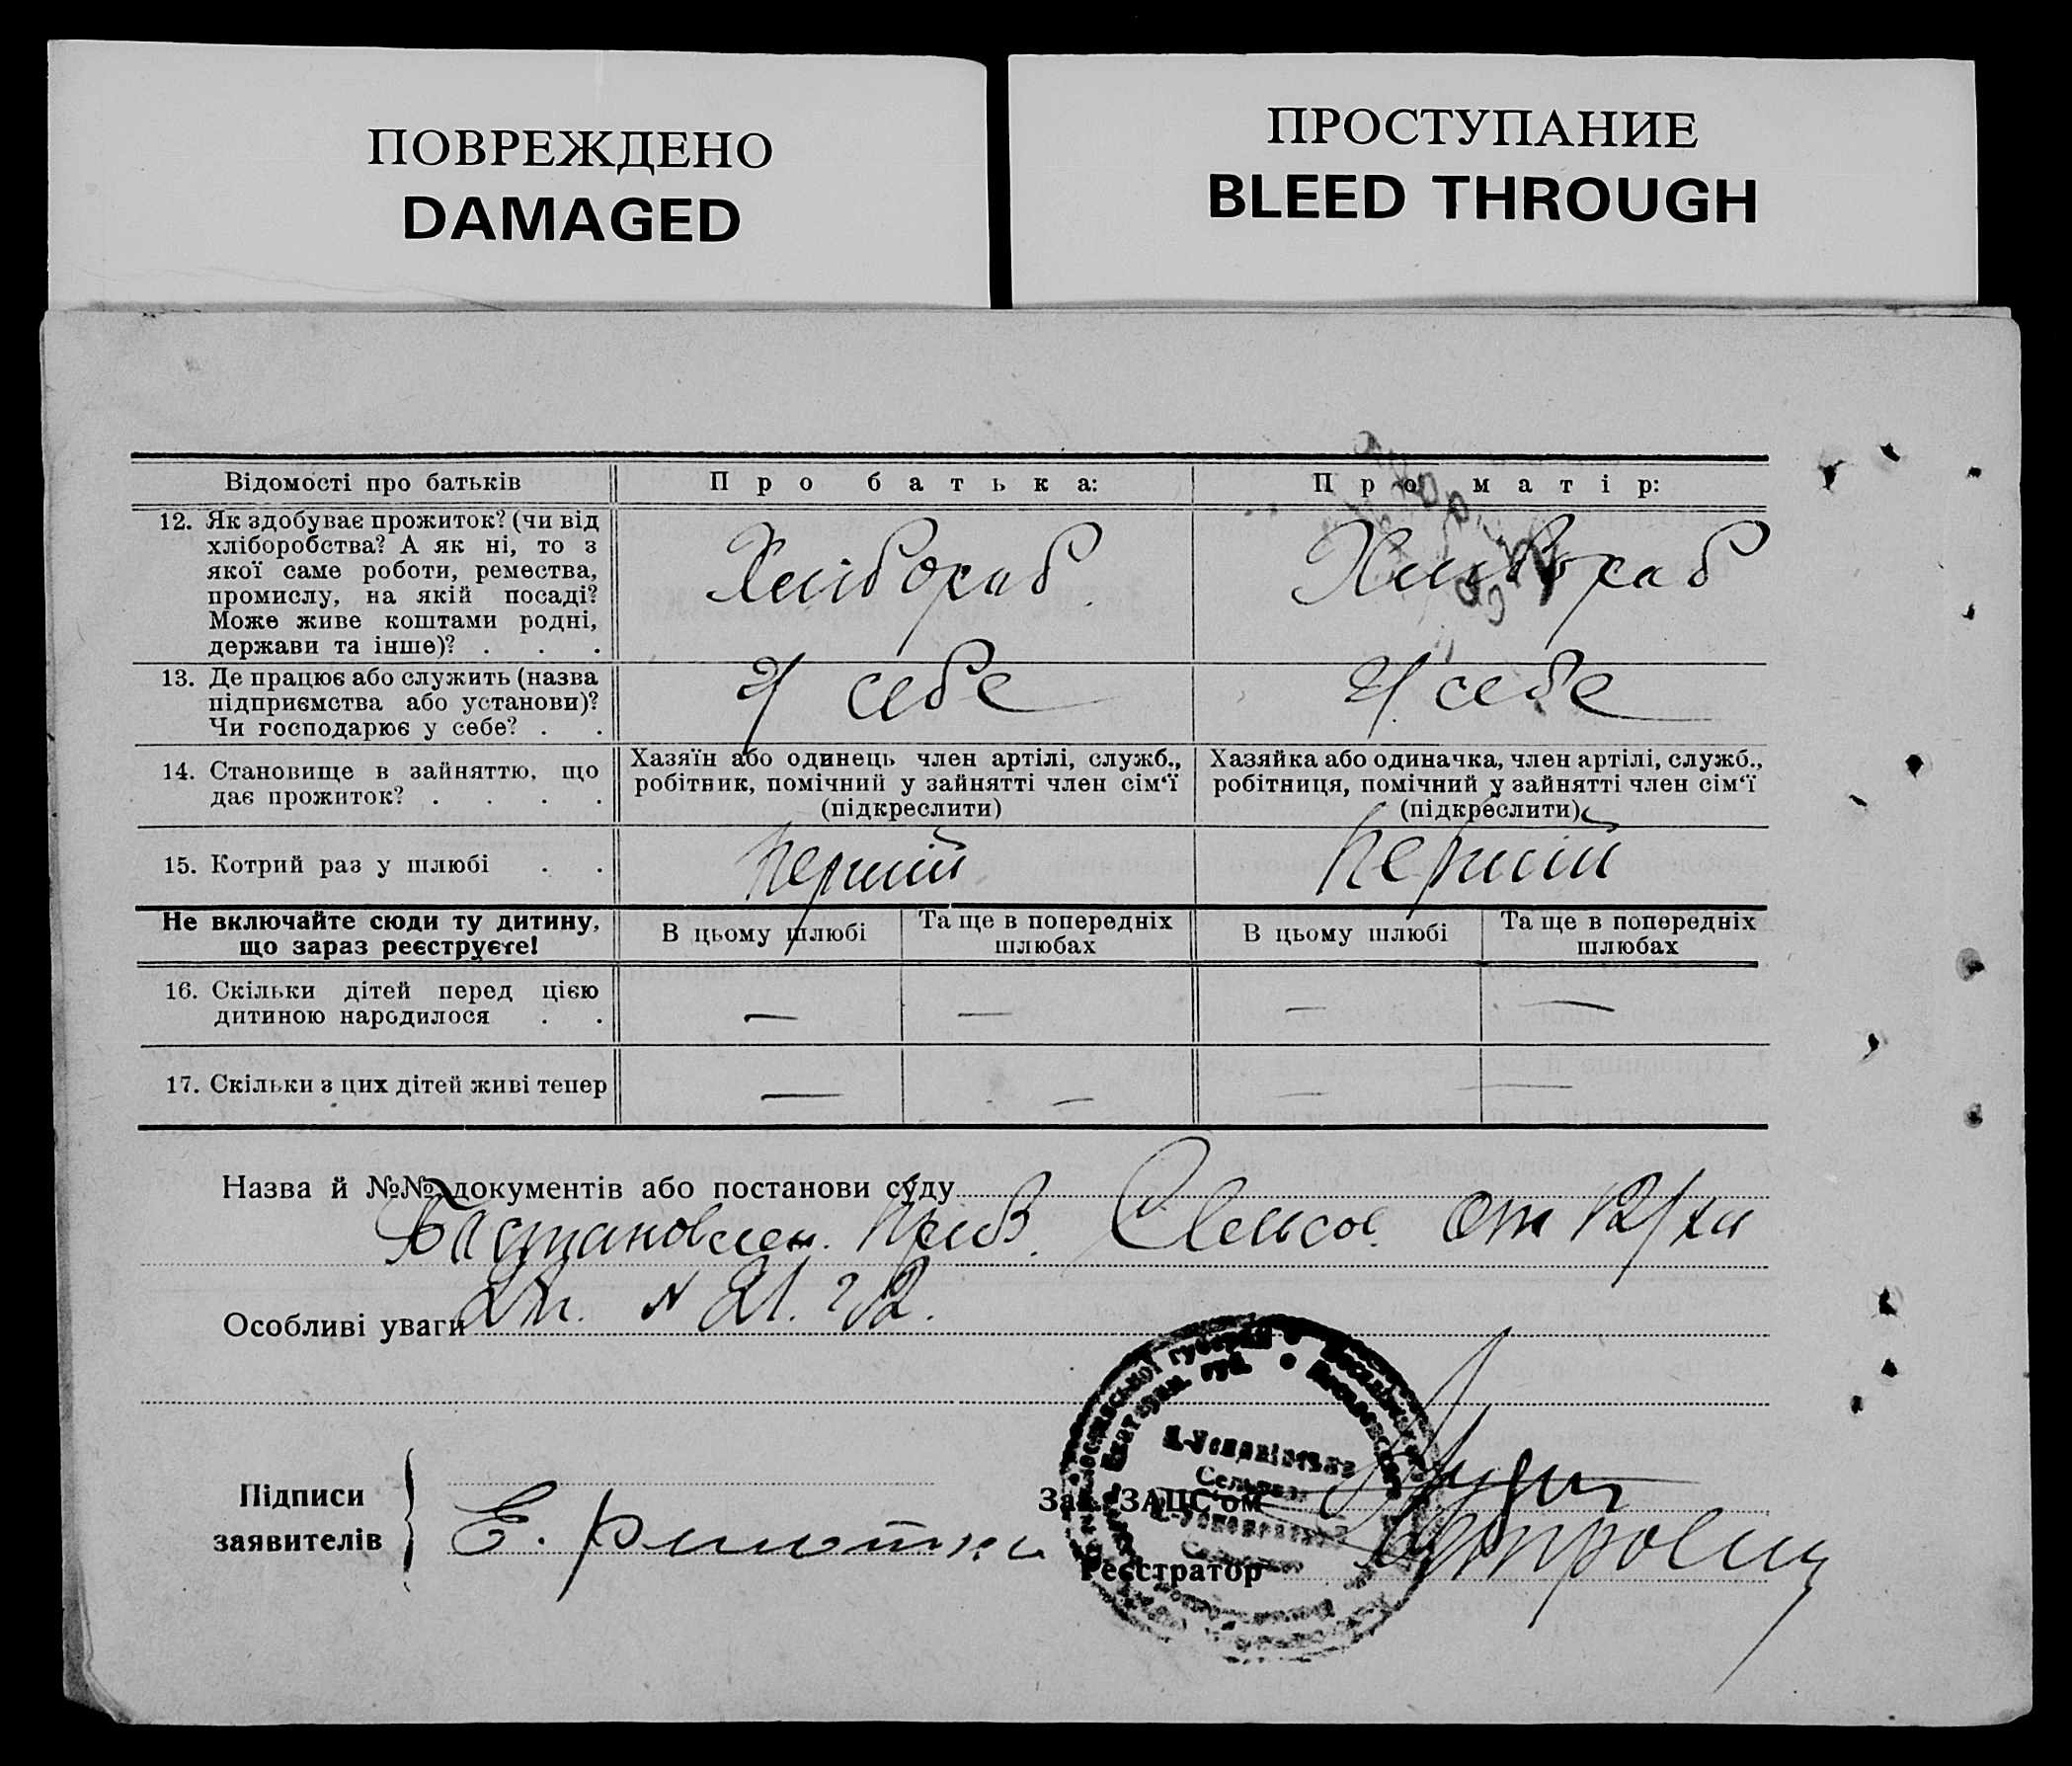 ПОВРЕЖДЕНО
DAMAGED
ПРОСТУПАНИЕ
BLEED THROUGH
Відомості про батьків
Про батька:
Про матір:
12. Як здобуває прожиток? (чи від
хліборобства? А як ні, то з
якої саме роботи, ремества,
промислу, на якій посаді?
Може живе коштами родні,
держави та інше)? . . .
Хлібораб
Хлибораб
13. Де працює або служить (назва
підприємства або установи)?
Чи господарює у себе? . .
У себе
У себе
14. Становище в зайняттю, що
дає прожиток? . . . .
Хазяїн або одинець член артілі, служб.,
робітник, помічний у зайнятті член сім'ї
(підкреслити)
Хазяйка або одиначка, член артілі, служб.,
робітниця, помічний у зайнятті член сім'ї
(підкреслити)
15. Котрий раз у шлюбі . .
перший
перший
Не включайте сюди ту дитину,
що зараз реєструєте!
В цьому шлюбі
Та ще в попередніх
шлюбах
В цьому шлюбі
Та ще в попередніх
шлюбах
16. Скільки дітей перед цією
дитиною народилося . .
— — — —
17. Скільки з цих дітей живі тепер
— — — —
Назва й №№ документів або постанови суду
от 12/XII
Особливі уваги
N 21.
Підписи
заявителів
Е.
Зав. ЗАЦС'ом
Реєстратор